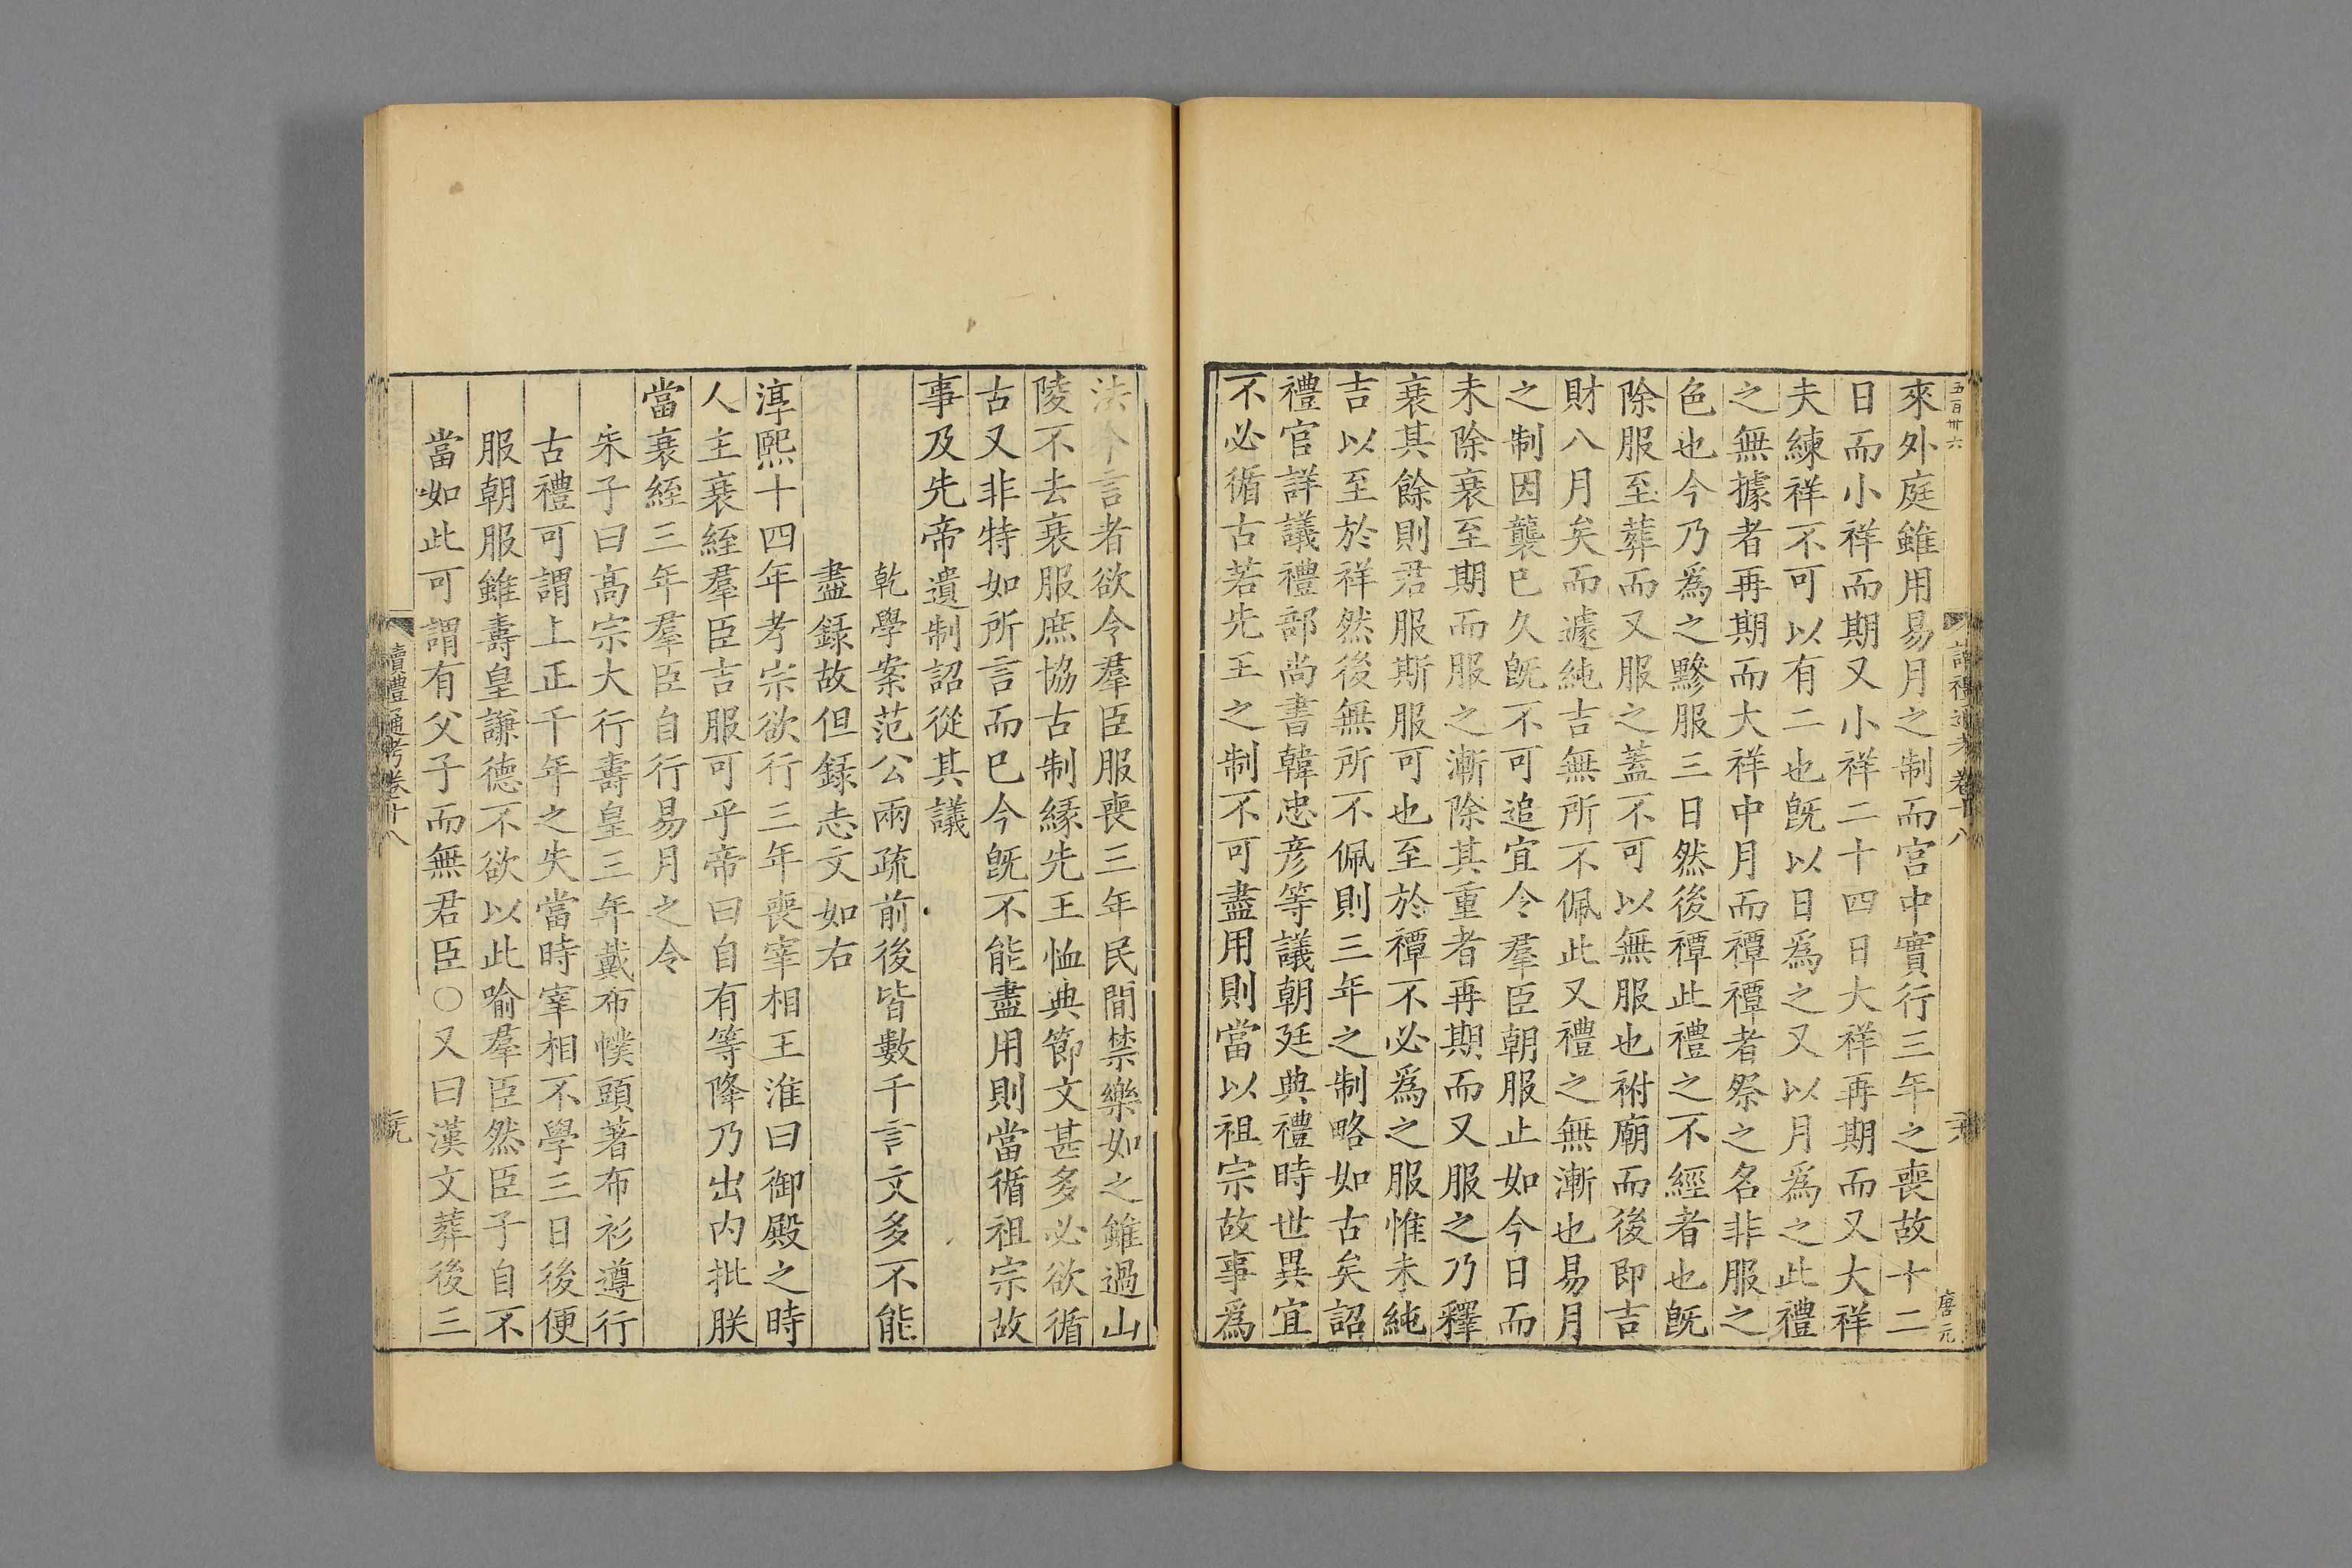 五百卅六
讀禮通考卷十八
唐元
來外庭雖用易月之制而宮中實行三年之喪故十二
日而小祥而期又小祥二十四日大祥再期而又大祥
夫練祥不可以有二也旣以日爲之又以月爲之此禮
之無據者再期而大祥中月而禫禫者祭之名非服之
色也今乃爲之黲服三日然後禫此禮之不經者也旣
除服至葬而又服之蓋不可以無服也祔廟而後即吉
財八月矣而遽純吉無所不佩此又禮之無漸也易月
之制因襲已久旣不可追宜令羣臣朝服止如今日而
未除衰至期而服之漸除其重者再期而又服之乃釋
衰其餘則君服斯服可也至於禫不必爲之服惟未純
吉以至於祥然後無所不佩則三年之制略如古矣詔
禮官詳議禮部尚書韓忠彦等議朝廷典禮時世異宜
不必循古若先王之制不可盡用則當以祖宗故事爲
法今言者欲令羣臣服喪三年民間禁樂如之雖過山
陵不去衰服庶協古制緣先王恤典節文甚多必欲循
古又非特如所言而已今旣不能盡用則當循祖宗故
事及先帝遺制詔從其議
乾學案范公兩疏前後皆數千言文多不能
盡録故但録志文如右
淳熙十四年考宗欲行三年喪宰相王淮曰御殿之時
人主衰絰羣臣吉服可乎帝曰自有等降乃出内批朕
當衰絰三年羣臣自行易月之令
朱子曰高宗大行壽皇三年戴布幞頭著布衫遵行
古禮可謂上正千年之失當時宰相不學三日後便
服朝服雖壽皇謙德不欲以此喻羣臣然臣子自不
當如此可謂有父子而無君臣〇又曰漢文葬後三
讀禮通考卷十八